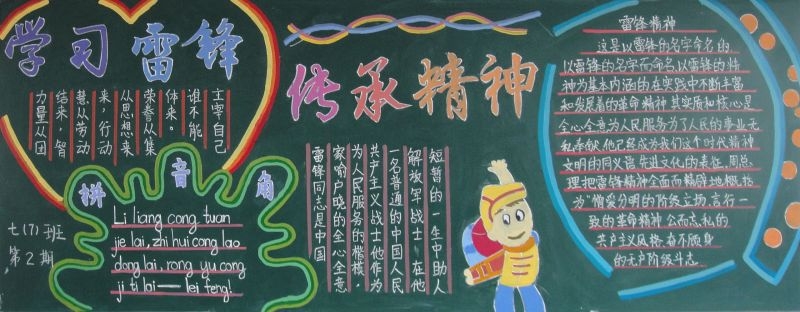 学习雷锋
力量从团
结来，智
慧从劳动
来，行动
从思想来
荣誉从集
体来。
谁不能
主宰自己
拼音角
Li liang cong tuan
jie lai, zhi hui cong lao
dong lai, rong yu cong
ji ti lai——lei feng!
七(7)班
第2期
传承精神
雷锋同志是中国
家喻户晓的全心全意
为人民服务的楷模，
共产主义战士他作为
一名普通的中国人民
解放军战士，在他
短暂的一生中助人
雷锋精神
这是以雷锋的名字命名的，
以雷锋的名字而命名以雷锋的精
神为基本内涵的在实践中不断丰富
和发展着的革命精神其实质和核心是
全心全意为人民服务为了人民的事业无
私奉献他已经成为我们这个时代精神
文明的同义语先进文化的表征，周总
理把雷锋精神全面而精辟地概括
为"憎爱分明的阶级立场，言行一
致的革命精神公而忘私的
共产主义风格，奋不顾身
的无产阶级斗志